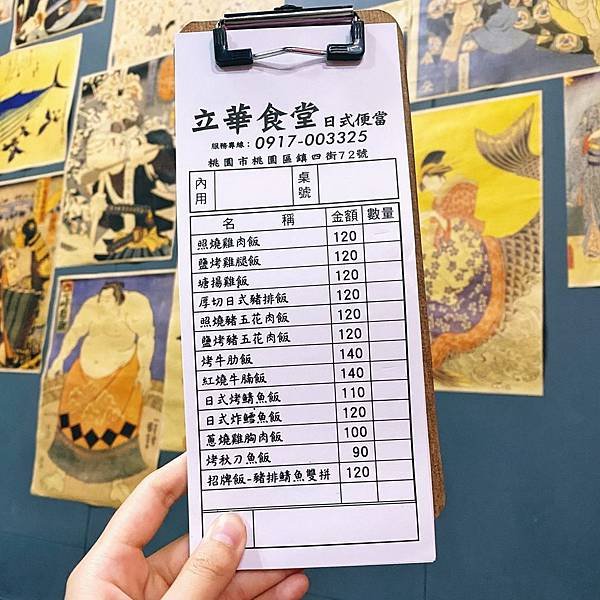 立華食堂日式便當
服務專線：0917-003325
桃園市桃園區鎮四街72號
內用 桌號
名 稱 金額 數量
照燒雞肉飯 120
鹽烤雞腿飯 120
塘揚雞飯 120
厚切日式豬排飯 120
照燒豬五花肉飯 120
鹽烤豬五花肉飯 120
烤牛肋飯 140
紅燒牛腩飯 140
日式烤鯖魚飯 110
日式炸鱈魚飯 120
蔥燒雞胸肉飯 100
烤秋刀魚飯 90
招牌飯-豬排鯖魚雙拼 120